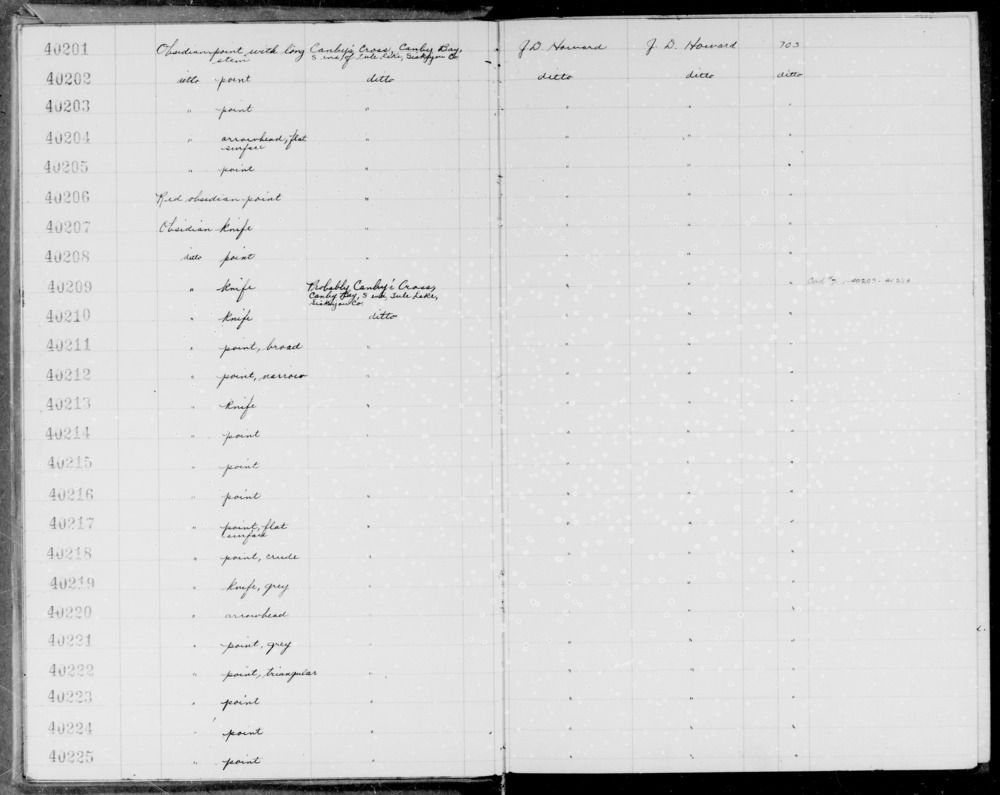 40201 Obsidian point with long stem Canby's Cross, Canby Bay, S end of Tule Lake, Siskiyou Co J. D. Howard J. D. Howard 703
40202 ditto point ditto ditto ditto ditto
40203 " point " " " "
40204 " arrowhead, flat surface " " " "
40205 " point " " " "
40206 Red obsidian point " " " "
40207 Obsidian knife " " " "
40208 ditto point " " " "
40209 " knife Probably Canby's Cross, Canby Bay, S end, Tule Lake, Siskiyou Co. " " "
40210 " knife ditto " " "
40211 " point, broad " " " "
40212 " point, narrow " " " "
40213 " knife " " " "
40214 " point " " " "
40215 " point " " " "
40216 " point " " " "
40217 " point, flat surface " " " "
40218 " point, crude " " " "
40219 " knife, grey " " " "
40220 " arrowhead " " " "
40221 " point, grey " " " "
40222 " point, triangular " " " "
40223 " point " " " "
40224 " point " " " "
40225 " point " " " "